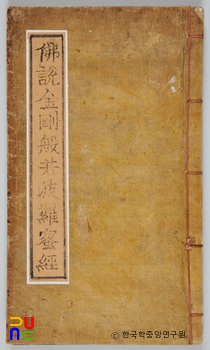 佛說金剛般若波羅蜜經
PUNG
© 한국학중앙연구원